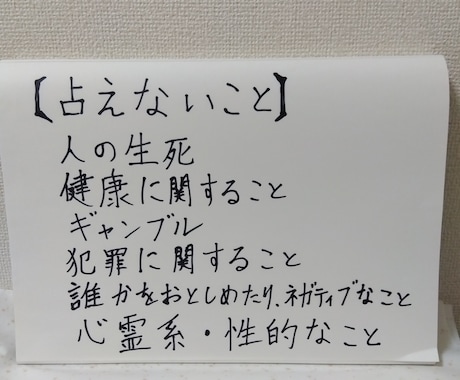 【占えないこと】
人の生死
健康に関すること
ギャンブル
犯罪に関すること
誰かをおとしめたり、ネガティブなこと
心霊系・性的なこと